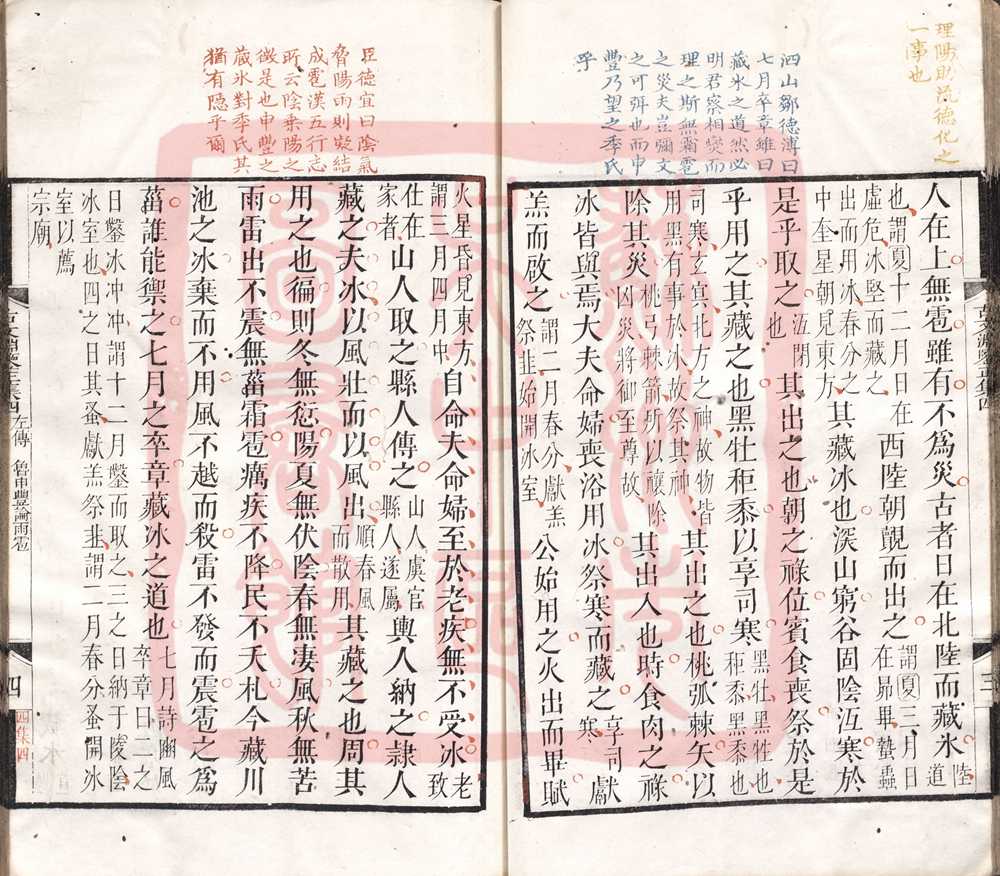 理陽助德化之
一事也
泗山鄒德溥曰
七月卒章雖曰
藏氷之道然必
明君察相燮而
理之斯無霜雹
之災夫豈彌文
之可弭也而申
豐乃望之季氏
乎
人在上無雹雖有不爲災古者日在北陸而藏氷陸道
也謂夏十二月日在虛危冰堅而藏之西陸朝覿而出之謂夏三月日在昴畢蟄蟲
出而用冰春分之中奎星朝見東方其藏冰也深山窮谷固陰沍寒於
是乎取之沍閉也其出之也朝之祿位賓食喪祭於是
乎用之其藏之也黑牡秬黍以享司寒黑牡黑牲也秬黍黑黍也
司寒玄冥北方之神故物皆用黑有事於冰故祭其神其出之也桃弧棘矢以
除其災桃弓棘箭所以禳除凶災將御至尊故其出入也時食肉之祿
冰皆與焉大夫命婦喪浴用冰祭寒而藏之享司寒獻
羔而啟之謂二月春分獻羔祭韭始開冰室公始用之火出而畢賦
三
臣德宜曰陰氣
脅陽雨則凝結
成雹漢五行志
所云陰乘陽之
徵是也申豐之
藏氷對季氏其
猶有隱乎爾
火星昏見東方謂三月四月中自命夫命婦至於老疾無不受冰老致
仕在家者山人取之縣人傳之山人虞官縣人遂屬輿人納之隸人
藏之夫冰以風壯而以風出順春風而散用其藏之也周其
用之也徧則冬無愆陽夏無伏陰春無凄風秋無苦
雨雷出不震無菑霜雹癘疾不降民不夭札今藏川
池之冰棄而不用風不越而殺雷不發而震雹之爲
菑誰能禦之七月之卒章藏冰之道也七月詩豳風卒章曰二之
日鑿冰冲冲謂十二月鑿而取之三之日納于陵陰冰室也四之日其蚤獻羔祭韭謂二月春分蚤開冰
室以薦宗廟
左傳 魯申豐論雨雹
四
四集四